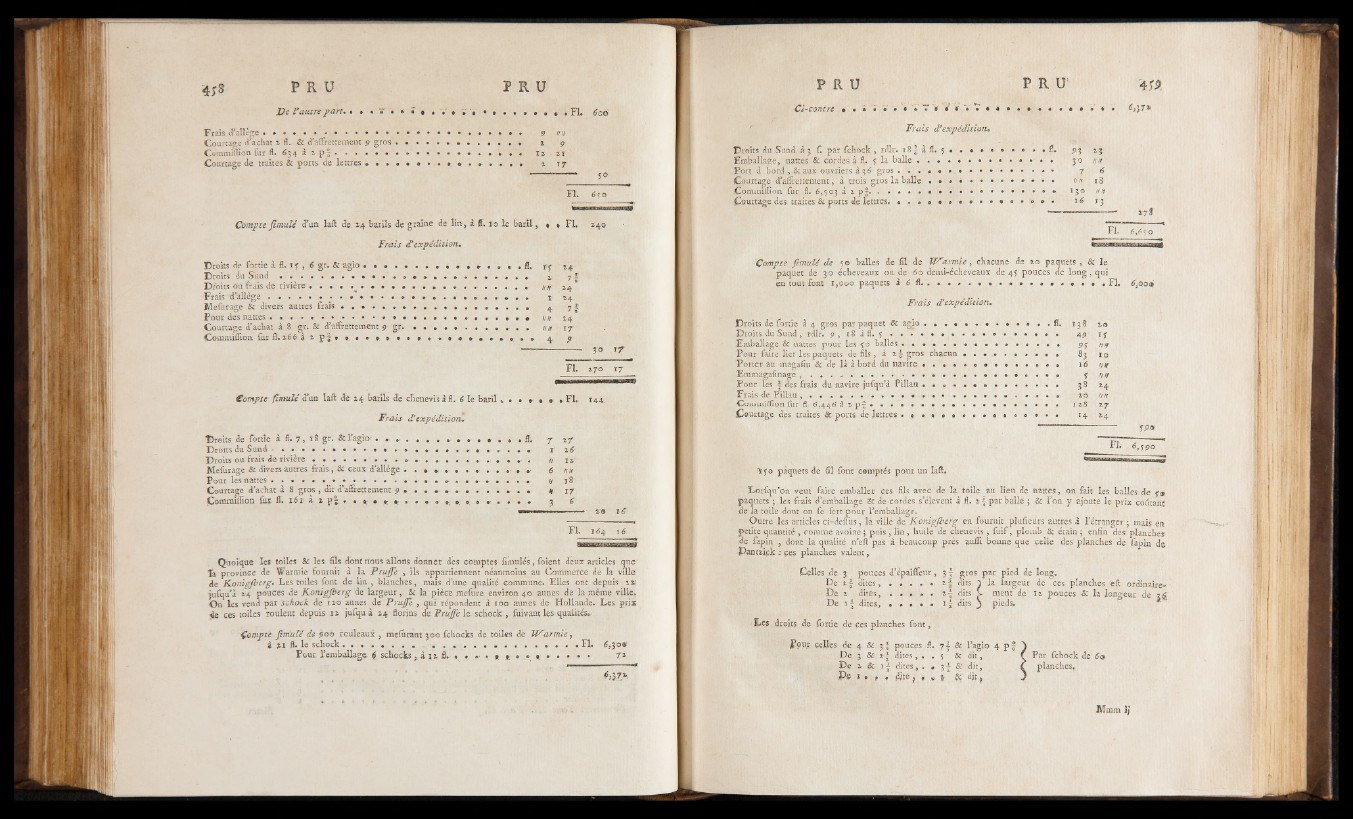 458 PRU PRU
De l'autre part. . . . . . . . . . . . . . . . . . . . Fl. 600
Frais d'allège . . . . . . . . . . . . . . . . . . . . 9 〃
Courtage d'achat 2 fl. & d'affrettement 9 gros . . . . . . . . . 2 9
Commission sur fl. 634 à 2 p 0/0 . . . . . . . . . . . . . . . 12 21
Courtage de traites & ports de lettres . . . . . . . . . . . . . 2 17
50
Fl. 650
Compte simulé d'un last de 24 barils de graine de lin, à fl. 10 le baril, . . Fl. 240
Frais d'expédition.
Droits de sortie à fl. 15, 6 gr. & agio . . . . . . . . . . . . fl. 15 24
Droits du Sund . . . . . . . . . . . . . . . . . . . . 2 7 1/2
Droits ou frais de rivière . . . . . . . . . . . . . . . . 〃 24
Frais d'allège . . . . . . . . . . . . . . . . . . . . 1 24
Mesurage & divers autres frais . . . . . . . . . . . . . . 4 7 1/2
Pour des nattes . . . . . . . . . . . . . . . . . . . . 〃 24
Courtage d'achat à 8 gr. & d'affrettement 9 gr. . . . . . . . . 〃 17
Commission sur fl. 266 à 2 p 0/0 . . . . . . . . . . . . . . 4 9
30 17
Fl. 270 17
Compte simulé d'un last de 24 barils de chenevis à fl. 6 le baril . . . . . . Fl. 144
Frais d'expédition.
Droits de sortie à fl. 7, 18 gr. & l'agio . . . . . . . . . . . . fl. 7 27
Droits du Sund . . . . . . . . . . . . . . . . . . . . 1 26
Droits ou frais de rivière . . . . . . . . . . . . . . . . 〃 12
Mesurage & divers autres frais, & ceux d'allége . . . . . . . . . 6 〃
Pour les nattes . . . . . . . . . . . . . . . . . . . . 〃 18
Courtage d'achat à 8 gros, dit d'affrettement 9 . . . . . . . . . 〃 17
Commission sur fl. 161 à 2 p 0/0 . . . . . . . . . . . . . . 3 6
20 16
Fl. 164 16
Quoique les toiles & les fils dont nous allons donner des comptes simulés, soient deux articles que
la province de Warmie fournit à la Prusse, ils appartiennent néanmoins au Commerce de la ville
de Konigsberg. Les toiles sont de lin, blanches, mais d'une qualité commune. Elles ont depuis 22
jusqu'à 24 pouces de Konigsberg de largeur, & la pièce mesure environ 40 aunes de la même ville.
On les vend par schock de 120 aunes de Prusse, qui répondent à 100 aunes de Hollande. Les prix
de ces toiles roulent depuis 12 jusqu'à 24 florins de Prusse le schock, suivant les qualités.
Compte simulé de 900 rouleaux, mesurant 300 schocks de toiles de Warmie,
à 21 fl. le schock . . . . . . . . . . . . . . . . . . Fl. 6,300
Pour l'emballage 6 schocks, à 12 fl. . . . . . . . . . . . . . 72
6,372
PRU PRU 459
Ci-contre . . . . . . . . . . . . . . . . . . . . 6,372
Frais d'expédition.
Droits du Sund à 3 f. par schock, rdlr. 18 3/4 à fl. 5 . . . . . . . . . fl. 93 23
Emballage, nattes & cordes à fl. 5 la balle . . . . . . . . . . . . 30 〃
Port à bord, & aux ouvriers à 36 gros . . . . . . . . . . . . . 7 6
Courtage d'affrettement, à trois gros la balle . . . . . . . . . . . 〃 18
Commission sur fl. 6,503 à 2 p 0/0 . . . . . . . . . . . . . . 130 〃
Courtage des traites & ports de lettres . . . . . . . . . . . . . 16 13
278
Fl. 6,650
Compte simulé de 50 balles de fil de Warmie, chacune de 20 paquets, & le
paquet de 30 écheveaux ou de 60 demi-écheveaux de 45 pouces de long, qui
en tout font 1,000 paquets à 6 fl. . . . . . . . . . . . . . . Fl. 6,000
Frais d'expédition.
Droits de sortie à 4 gros par paquet & agio . . . . . . . . . . . fl. 138 20
Droits du Sund, rdlr. 9, 18 à fl. 5 . . . . . . . . . . . . . . 49 15
Emballage & nattes pour les 50 balles . . . . . . . . . . . . . 95 〃
Pour faire lier les paquets de fils, à 2 1/2 gros chacun . . . . . . . . 83 10
Porter au magasin & de là à bord du navire . . . . . . . . . . . 16 〃
Emmagasinage, . . . . . . . . . . . . . . . . . . . . 5 〃
Pour les des frais du navire jusqu'à Pillau . . . . . . . . . . . 38 24
Frais de Pillau, . . . . . . . . . . . . . . . . . . . . 20 〃
Commission sur fl. 6,446 à 2 p 0/0 . . . . . . . . . . . . . . 128 27
Courtage des traites & ports de lettres . . . . . . . . . . . . . 14 24
590
Fl. 6,590
150 paquets de fil sont comptés pour un last.
Lorsqu'on veut faire emballer ces fils avec de la toile au lieu de nattes, on fait les balles de 50
paquets; les frais d'emballage & de cordes s'élevent à fl. 2 1/2 par balle; & l'on y ajoute le prix coûtant
de la toile dont on se sert pour l'emballage.
Outre les articles ci-dessus, la ville de Konigsberg en fournit plusieurs autres à l'étranger; mais en
petite quantité, comme avoine; pois, lin, huile de chenevis, suif, plomb & étain; enfin des planches
de sapin, dont la qualité n'est pas à beaucoup près aussi bonne que celle des planches de sapin de
Dantzick: ces planches valent,
Celles de 3 pouces d'épaisseur, 3 1/2 gros par pied de long.
De 2 1/2 dites, . . . . . 2 3/4 dits } la largeur de ces planches est ordinaire-
De 2 dites, . . . . . 2 1/4 dits } ment de 12 pouces & la longueur de 36
De 1 1/2 dites, . . . . . 1 1/2 dits } pieds.
Les droits de sortie de ces planches sont,
Pour celles de 4 & 3 1/2 pouces fl. 7 1/2 & l'agio 4 p 0/0 }
De 3 & 2 1/2 dites, . . . 5 & dit, } Par schock de 60
De 2 & 1 1/2 dites, . . 3 1/2 & dit, } planches.
De 1 . . . dite, . . & dit, }
Mmm ij